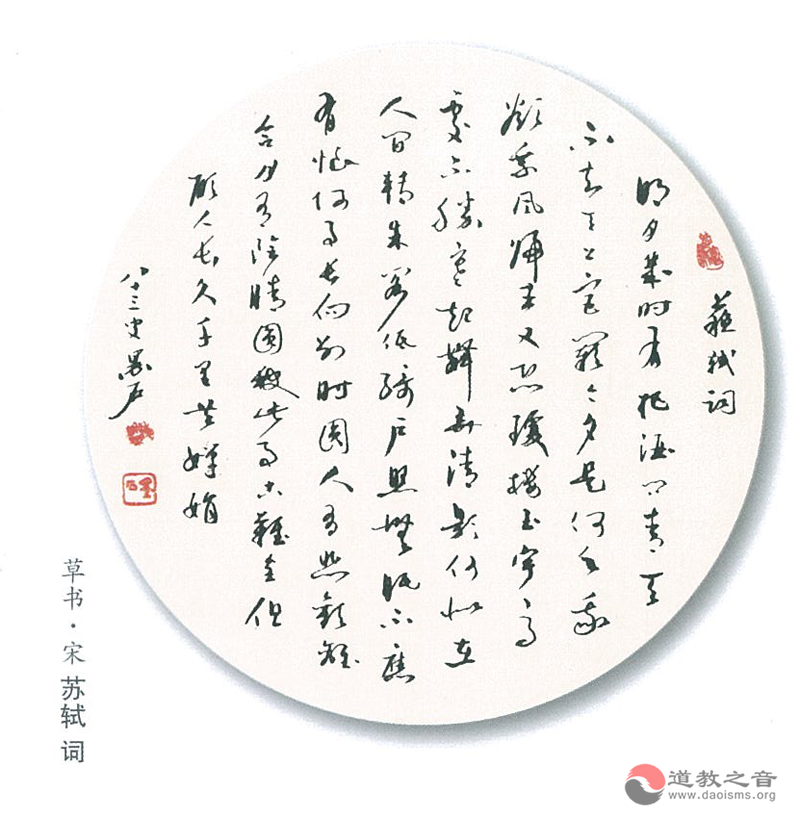 蘇軾词
明月幾时有把酒问青天
不知天上宫闕今夕是何年我
欲乘风归去又恐瓊楼玉宇高
處不勝寒起舞弄清影何似在
人间轉朱阁低绮户照無眠不應
有恨何事长向别时圆人有悲歡離
合月有阴晴圆缺此事古難全但
願人长久千里共婵娟
八十三叟墨石
草书·宋 苏轼 词
道教之音
www.daoisms.org